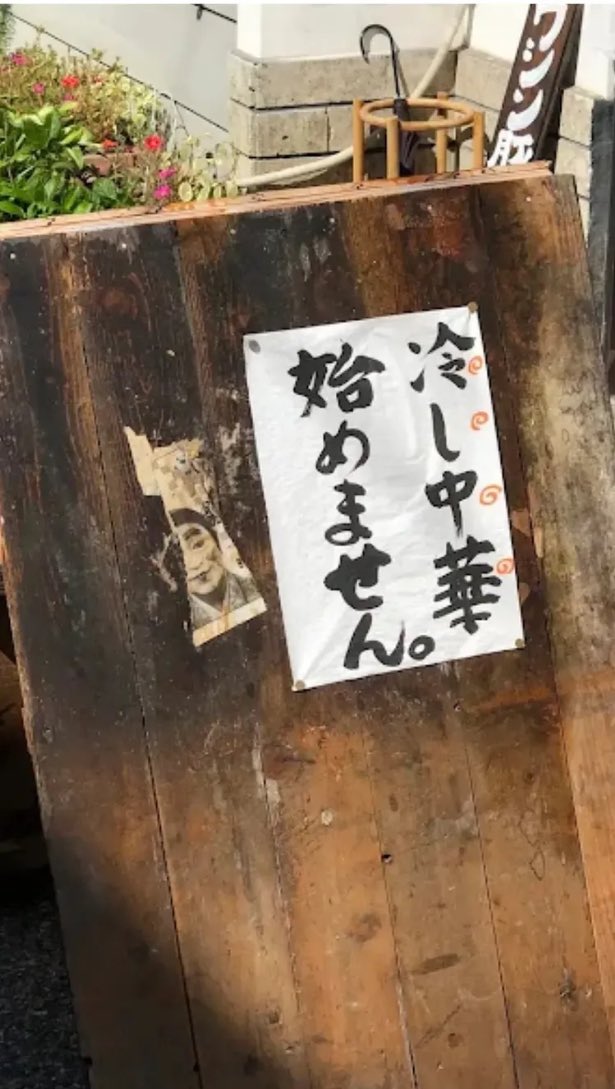 冷し中華
始めません。